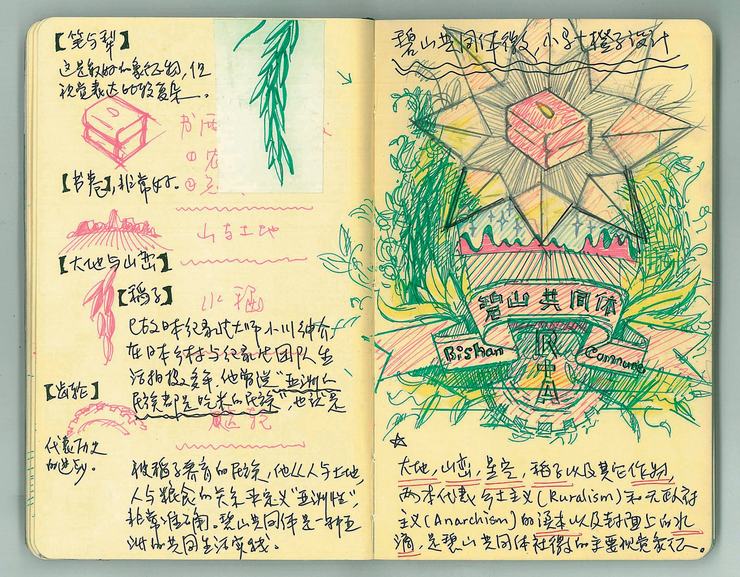 【笔与犁】
这是最好的象征物，但
视觉表达比较复杂。
【书卷】，非常好。
山与土地
【大地与山峦】
【稻子】
水稻
已故日本纪录片大师小川绅介，
在日本乡村与纪录片团队生
活拍摄多年，他曾说“亚洲的
民族都是吃米的民族”，也就是
【齿轮】
代表历史
的进步。
被稻子养育的民族，他从人与土地，
人与粮食的关系来定义“亚洲性”，
非常准确。碧山共同体是一种亚
洲的共同生活实践。
碧山共同体徽，小号+橙子设计
碧山共同体
Bishan
Commune
大地，山峦，星空，稻子以及其它作物，
两本代表乡土主义(Ruralism)和无政府
主义(Anarchism)的读本以及封面上的水
滴，是碧山共同体社徽的主要视觉象征。